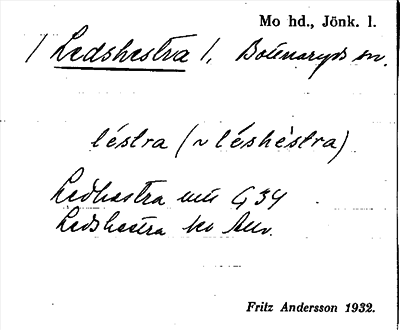 Mo hd., Jönk. l.
/ Ledshestra /, Bottnaryds sn.
léstra (~ léshèstra)
Ledhestra
Ledshestra
Fritz Andersson 1932.